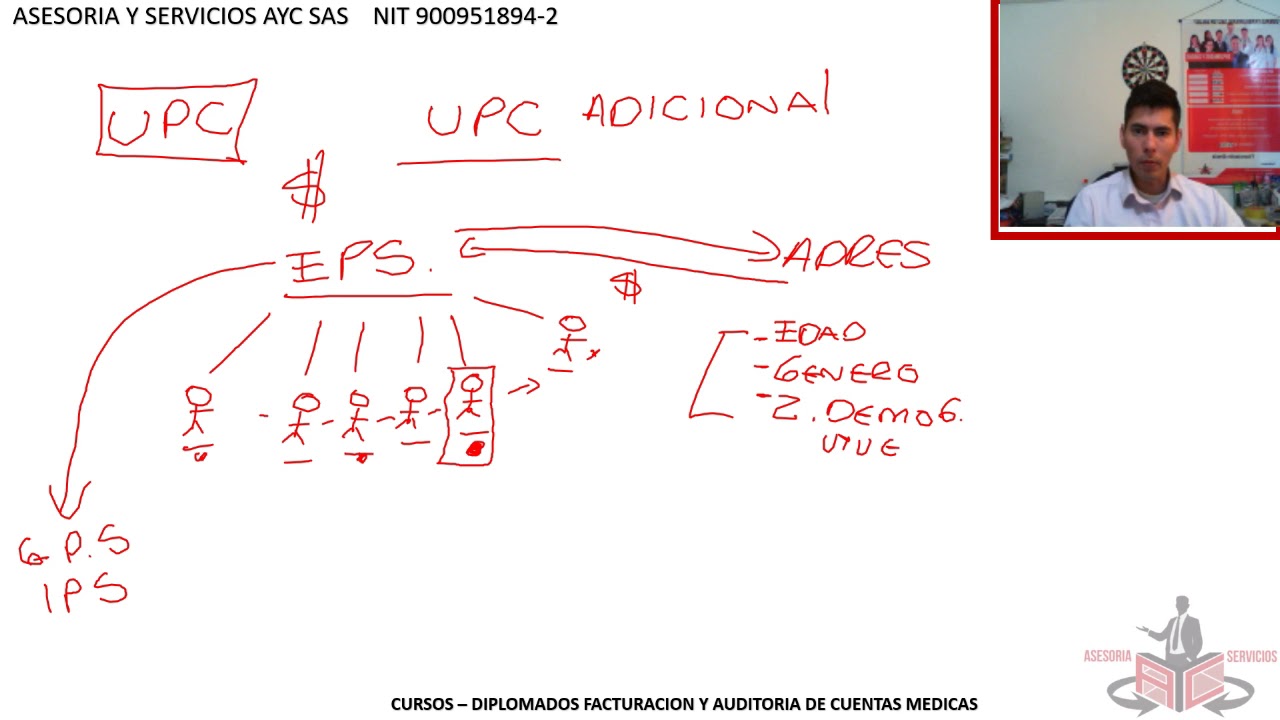 ASESORIA Y SERVICIOS AYC SAS NIT 900951894-2
UPC
UPC ADICIONAL
$
EPS.
ADRES
$
- EDAD
- GENERO
- Z. DEMOG.
VIVE
G P.S
IPS
ASESORIA SERVICIOS
CURSOS – DIPLOMADOS FACTURACION Y AUDITORIA DE CUENTAS MEDICAS